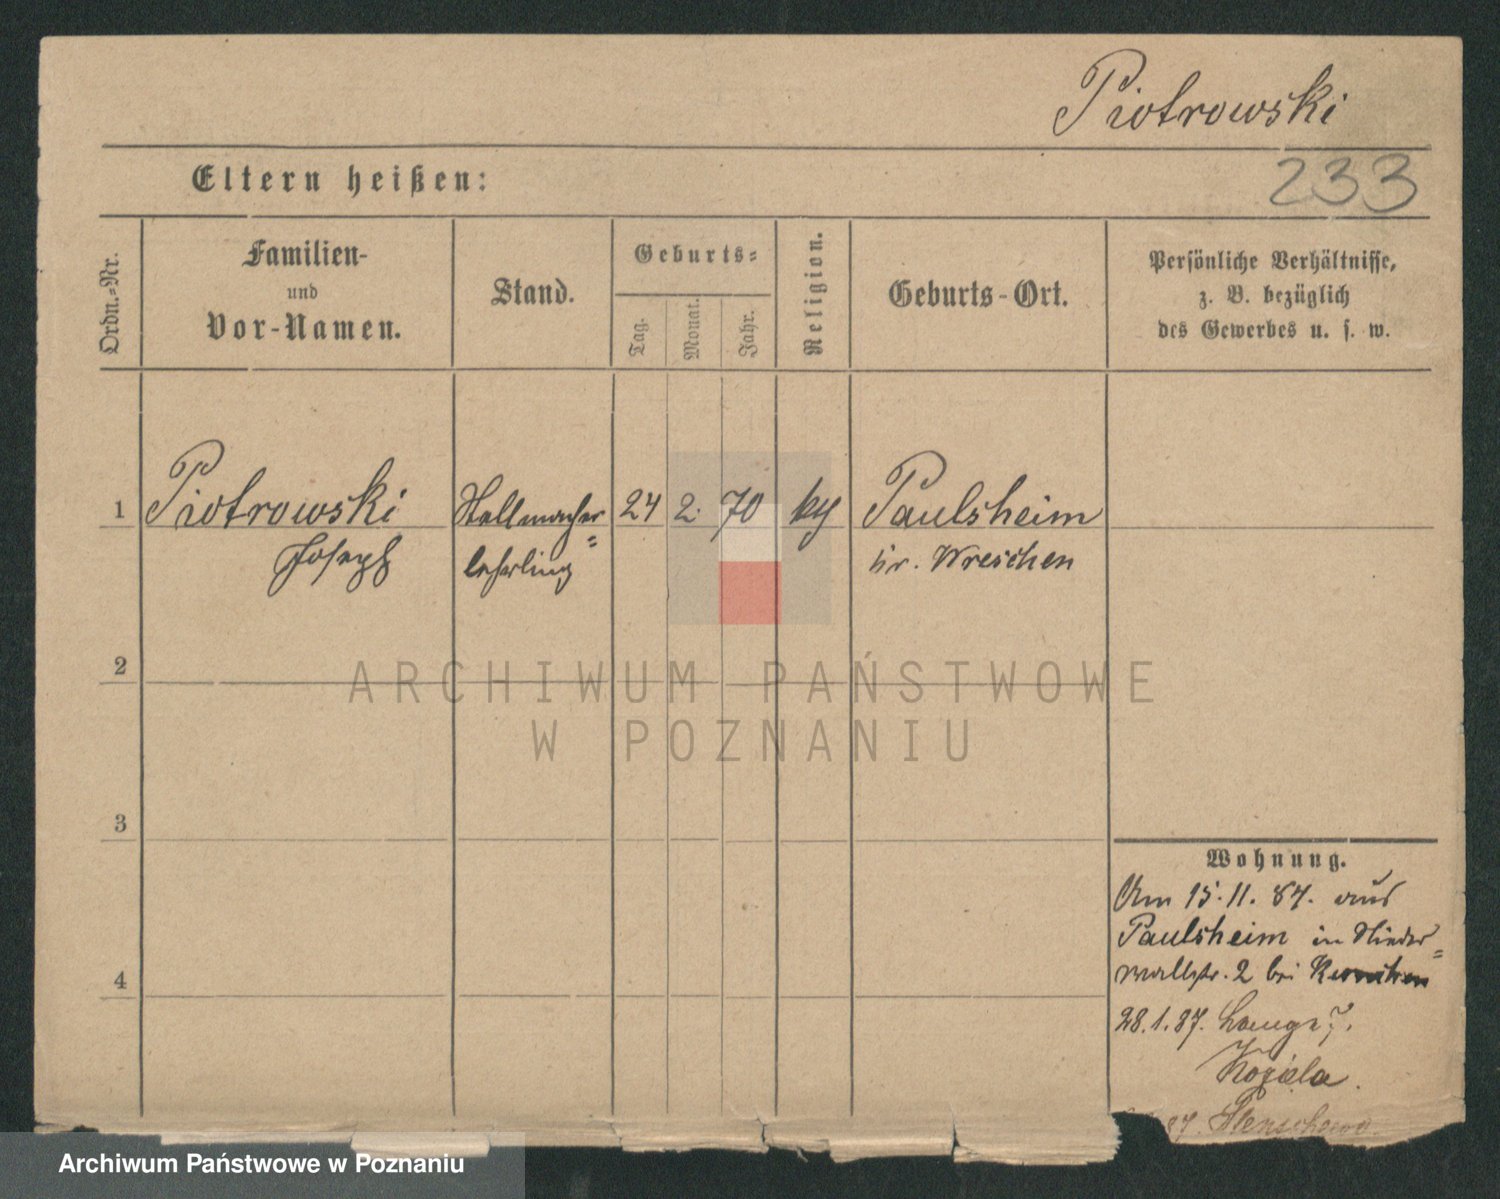 Piotrowski
Eltern heißen:
233
Ordn.-Nr.
Familien-
und
Vor-Namen.
Stand.
Geburts-
Tag.
Monat.
Jahr.
Religion.
Geburts-Ort.
Persönliche Verhältnisse,
z. B. bezüglich
des Gewerbes u. s. w.
1 Piotrowski Stellmacher= 24 2. 70 Paulsheim
Joseph lehrling Kr. Wreschen
2
ARCHIWUM PAŃSTWOWE
W POZNANIU
3
4
Wohnung.
Am 15.11.87. aus
Paulsheim in Nieder=
wallstr. 2 bei
28.1.87. Lange 7.
87.
Archiwum Państwowe w Poznaniu